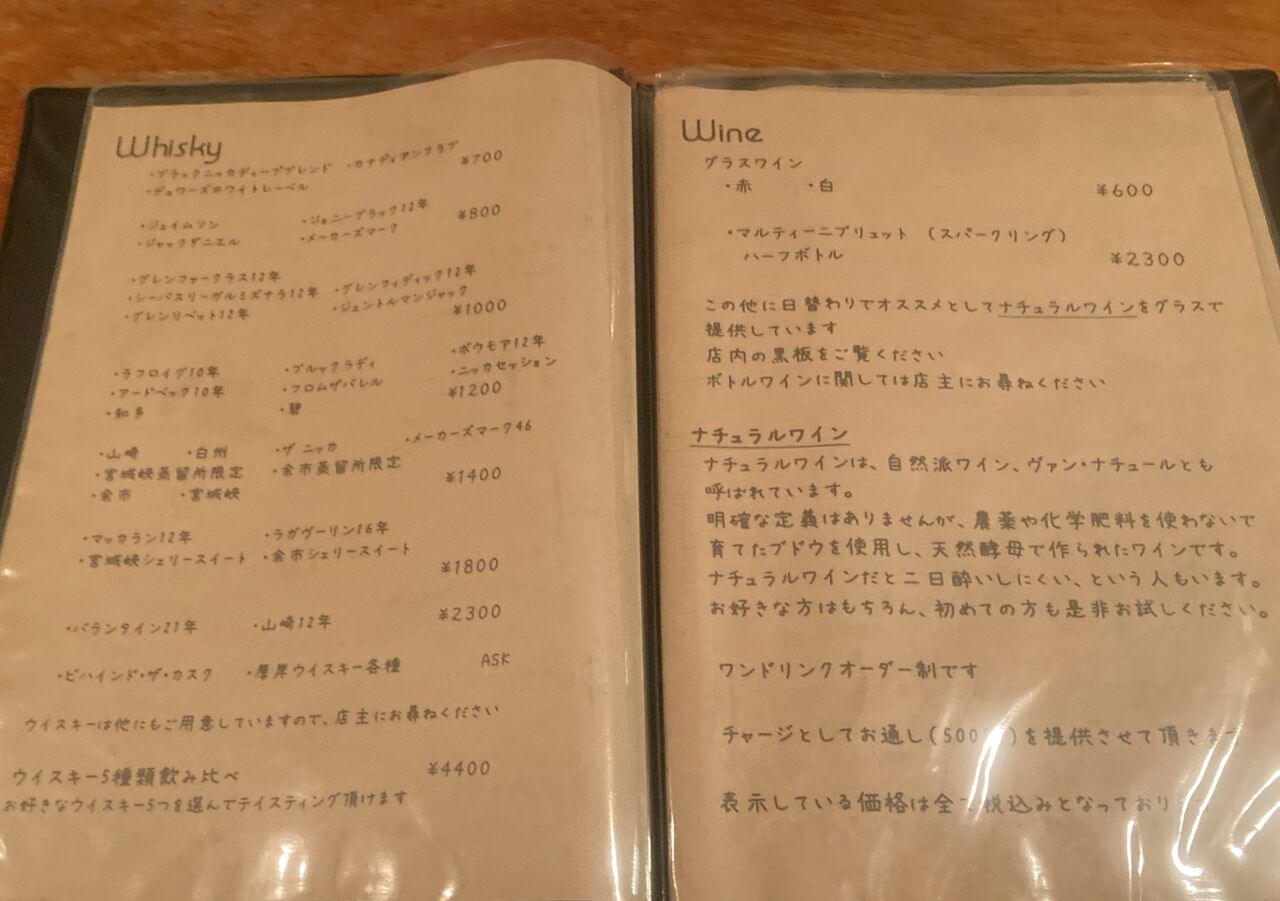 Whisky
・ブラックニッカディープブレンド ・カナディアンクラブ
・デュワーズホワイトレーベル ¥700
・ジェイムソン ・ジョニーブラック12年
・ジャックダニエル ・メーカーズマーク ¥800
・グレンファークラス12年 ・グレンフィディック12年
・シーバスリーガルミズナラ12年 ・ジェントルマンジャック
・グレンリベット12年 ¥1000
・ラフロイグ10年 ・ブルックラディ ・ボウモア12年
・アードベック10年 ・フロムザバレル ・ニッカセッション
・知多 ・碧 ¥1200
・山崎 ・白州 ・ザ ニッカ ・メーカーズマーク46
・宮城峡蒸留所限定 ・余市蒸留所限定
・余市 ・宮城峡 ¥1400
・マッカラン12年 ・ラガヴーリン16年
・宮城峡シェリースイート ・余市シェリースイート
¥1800
・バランタイン21年 ・山崎12年 ¥2300
・ビハインド・ザ・カスク ・厚岸ウイスキー各種 ASK
ウイスキーは他にもご用意していますので、店主にお尋ねください
ウイスキー5種類飲み比べ ¥4400
お好きなウイスキー5つを選んでテイスティング頂けます
Wine
グラスワイン
・赤 ・白 ¥600
・マルティーニブリュット (スパークリング)
ハーフボトル ¥2300
この他に日替わりでオススメとしてナチュラルワインをグラスで
提供しています
店内の黒板をご覧ください
ボトルワインに関しては店主にお尋ねください
ナチュラルワイン
ナチュラルワインは、自然派ワイン、ヴァン・ナチュールとも
呼ばれています。
明確な定義はありませんが、農薬や化学肥料を使わないで
育てたブドウを使用し、天然酵母で作られたワインです。
ナチュラルワインだと二日酔いしにくい、という人もいます。
お好きな方はもちろん、初めての方も是非お試しください。
ワンドリンクオーダー制です
チャージとしてお通し(500)を提供させて頂きま
表示している価格は全て税込みとなっており